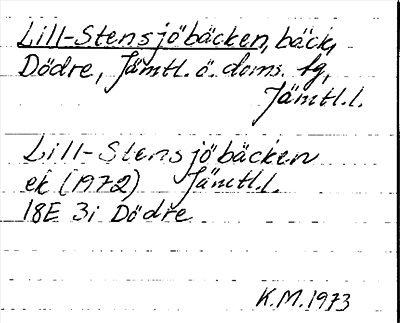 Lill-Stensjöbäcken, bäck,
Dödre, Jämtl. ö. doms. tg,
Jämtl.l.
Lill-Stensjöbäcken
ek (1972) Jämtl.l.
18E 3i Dödre
K.M.1973